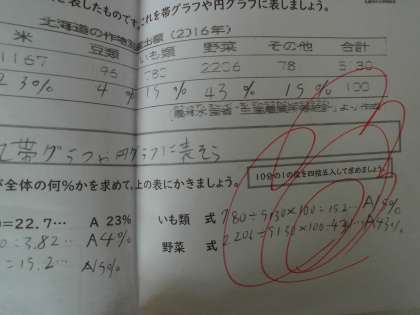 に表したものです。これを帯グラフや円グラフに表しましょう。
北海道の作物別産出額(2016年)
米 豆類 いも類 野菜 その他 合計
1167 96 780 2206 78 5130
23% 4% 15% 43% 15% 100
(農林水産省
て帯グラフや円グラフに表そう
が全体の何%かを求めて、上の表にかきましょう。
10分の1の位を四捨五入して求めましょう
=22.7… A 23% いも類 式 780÷5130×100=15.2… A15%
=3.82… A4%
野菜 式 2206÷5130×100=43… A43%
=15.2… A15%